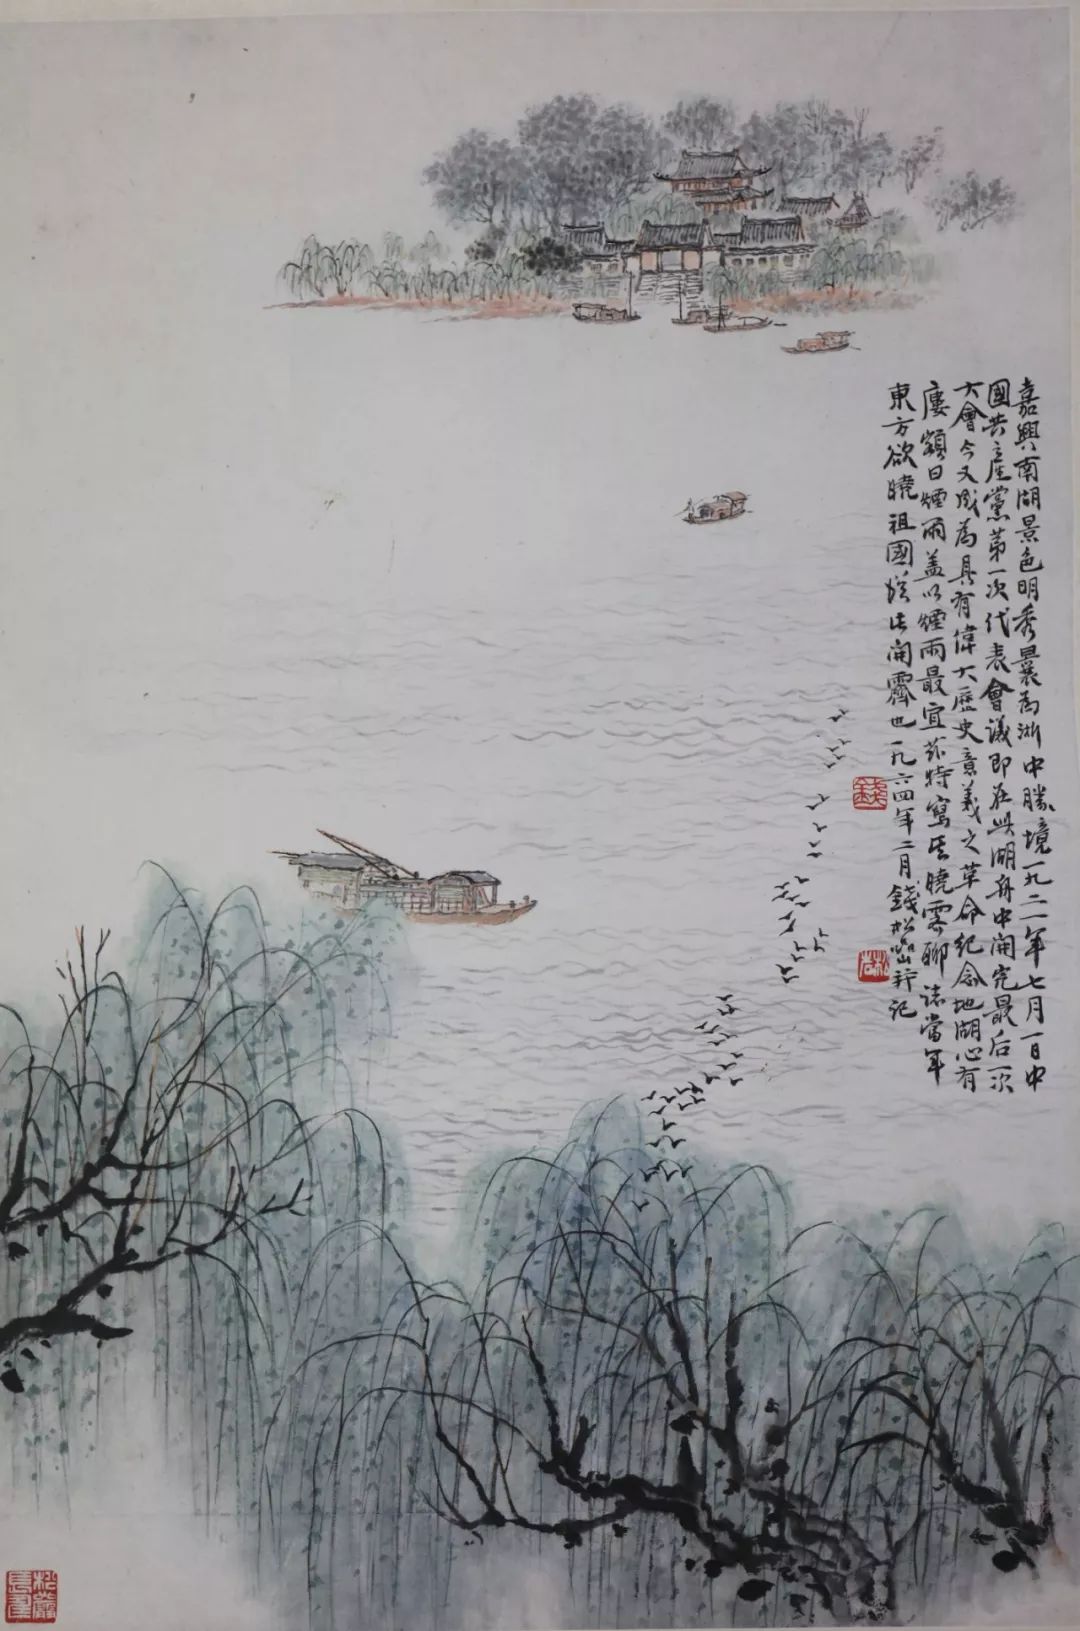 嘉興南湖景色明秀曩為浙中勝境一九二一年七月一日中
國共產黨第一次代表會議即在此湖舟中開完最后一次
大會今又成為具有偉大歷史意義之革命紀念地湖心有
廔額曰煙雨蓋以煙雨最宜茲特寫其曉霽聊誌當年
東方欲曉祖國從此開霽也一九六四年二月錢松嵒并記
錢
松嵒